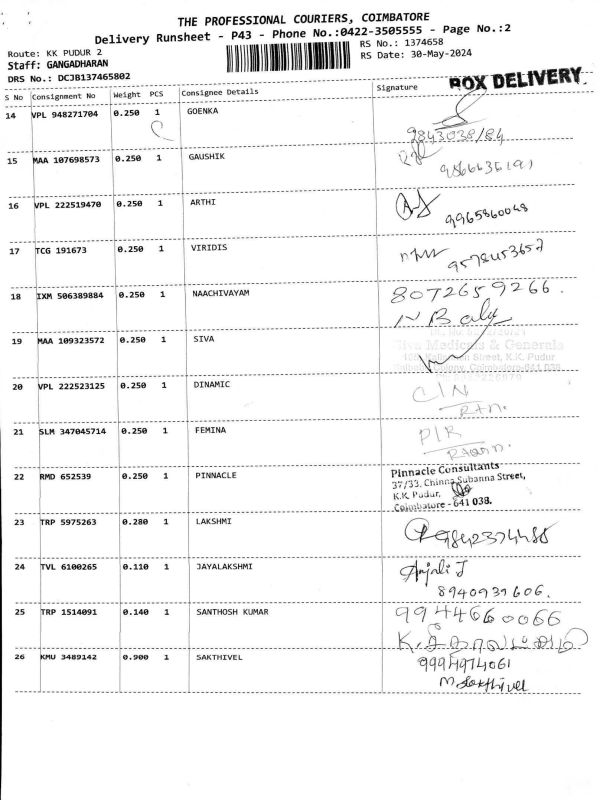 THE PROFESSIONAL COURIERS, COIMBATORE
Delivery Runsheet - P43 - Phone No.:0422-3505555 - Page No.:2
Route: KK PUDUR 2
RS No.: 1374658
Staff: GANGADHARAN
RS Date: 30-May-2024
DRS No.: DCJB137465802
BOX DELIVERY
S No Consignment No Weight PCS Consignee Details Signature
14 VPL 948271704 0.250 1 GOENKA
15 MAA 107698573 0.250 1 GAUSHIK
16 VPL 222519470 0.250 1 ARTHI
9965860048
17 TCG 191673 0.250 1 VIRIDIS
18 IXM 506389884 0.250 1 NAACHIVAYAM
8072659266.
19 MAA 109323572 0.250 1 SIVA
Siva Medicals & Generals
Street, K.K. Pudur
20 VPL 222523125 0.250 1 DINAMIC
21 SLM 347045714 0.250 1 FEMINA
22 RMD 652539 0.250 1 PINNACLE
Pinnacle Consultants
37/33, Chinna Subanna Street,
K.K. Pudur,
Coimbatore - 641 038.
23 TRP 5975263 0.280 1 LAKSHMI
24 TVL 6100265 0.110 1 JAYALAKSHMI
Anjali J
8940939606.
25 TRP 1514091 0.140 1 SANTHOSH KUMAR
9944660066
26 KMU 3489142 0.900 1 SAKTHIVEL
9994974061
M. Sakthivel